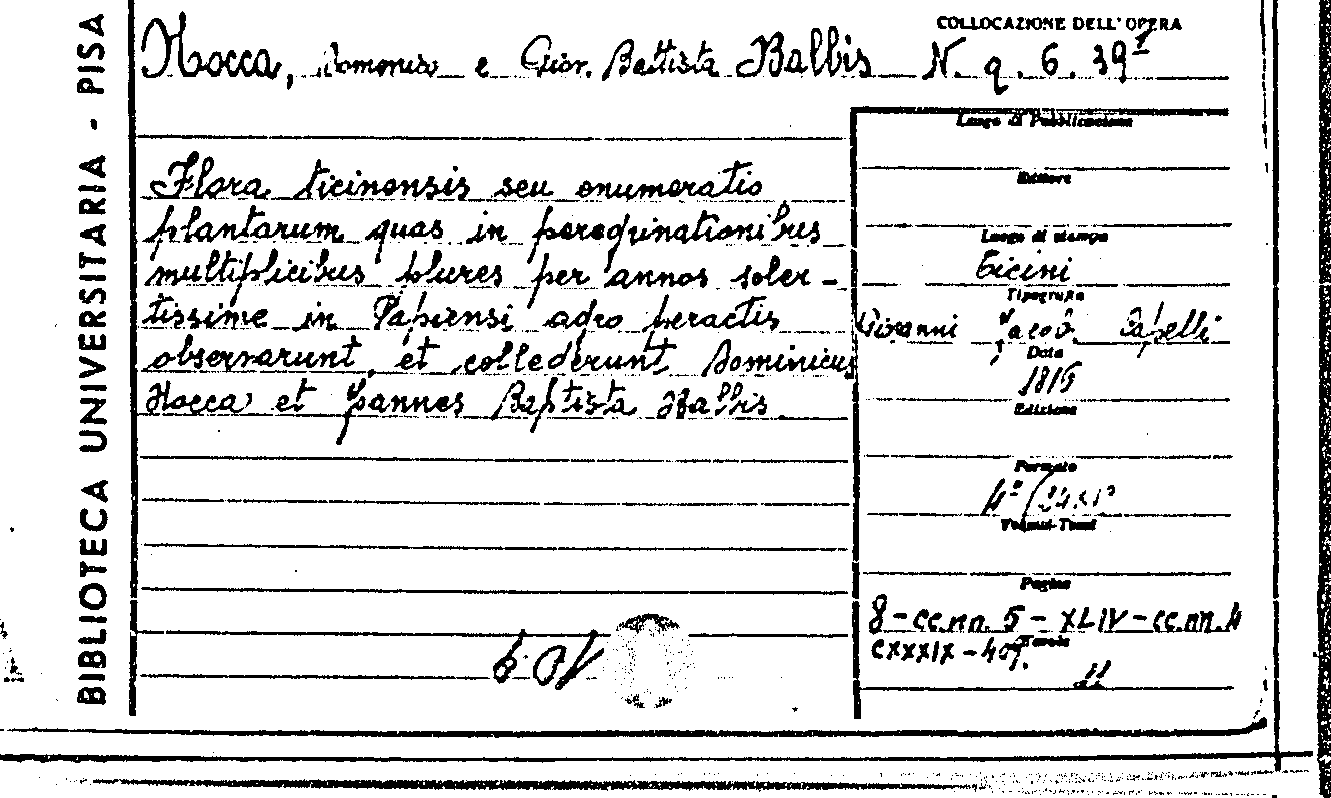 BIBLIOTECA UNIVERSITARIA - PISA
COLLOCAZIONE DELL'OPERA
Nocca, Domenico e Giov. Battista Balbis N. q. 6. 39 I
Luogo di Pubblicazione
Flora ticinensis seu enumeratio
plantarum quas in peregrinationibus
multiplicibus plures per annos soler-
tissime in Papiensi agro peractis
observarunt, et collederunt Dominicus
Nocca et Joannes Baptista Balbis
Editore
Luogo di stampa
Ticini
Tipografia
Giovanni Jacob. Capelli
Data
1816
Edizione
Formato
4°
Volumi-Tomi
Pagine
8-cc.nn. 5-XLIV-cc.nn.4
Tavole
CXXXIX-409.